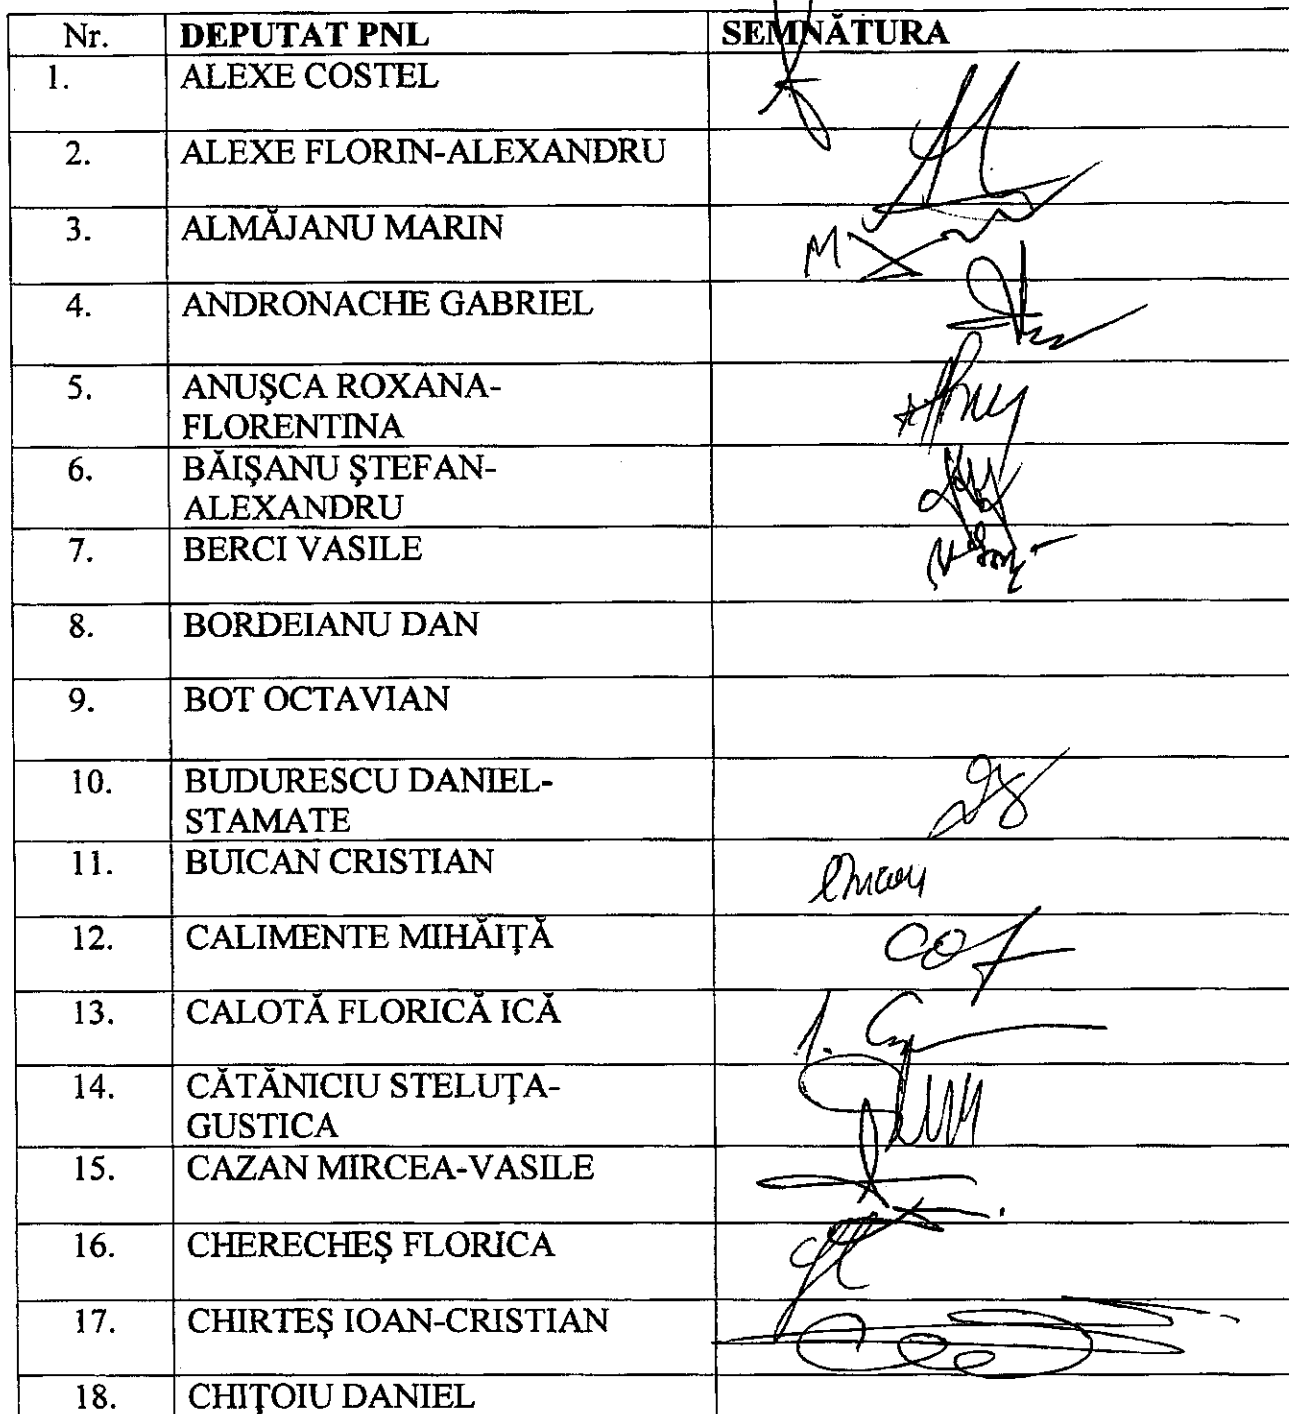 Nr. DEPUTAT PNL SEMNĂTURA
1. ALEXE COSTEL
2. ALEXE FLORIN-ALEXANDRU
3. ALMĂJANU MARIN
4. ANDRONACHE GABRIEL
5. ANUŞCA ROXANA-
FLORENTINA
6. BĂIŞANU ŞTEFAN-
ALEXANDRU
7. BERCI VASILE
8. BORDEIANU DAN
9. BOT OCTAVIAN
10. BUDURESCU DANIEL-
STAMATE
11. BUICAN CRISTIAN
12. CALIMENTE MIHĂIŢĂ
13. CALOTĂ FLORICĂ ICĂ
14. CĂTĂNICIU STELUŢA-
GUSTICA
15. CAZAN MIRCEA-VASILE
16. CHERECHEŞ FLORICA
17. CHIRTEŞ IOAN-CRISTIAN
18. CHIŢOIU DANIEL